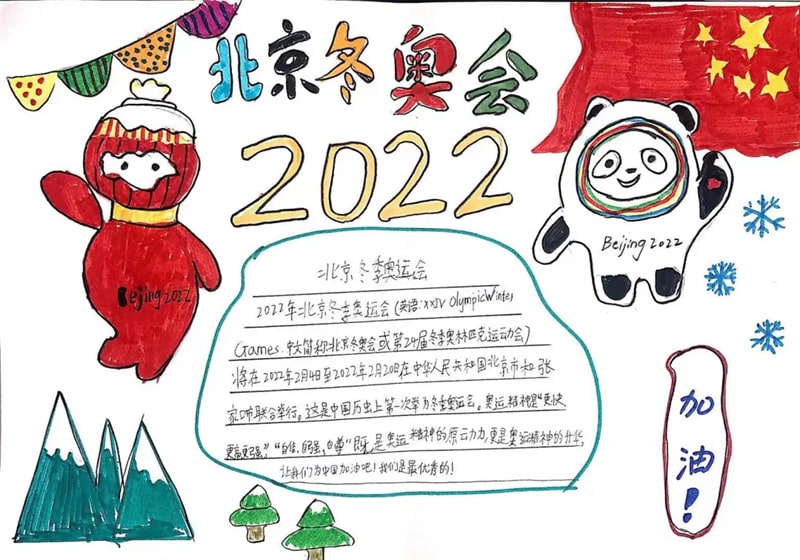 北京冬奥会
2022
Beijing 2022
Beijing 2022
北京冬季奥运会
2022年北京冬季奥运会(英语:XXIV OlympicWinter
Games.中文简称北京冬奥会或第24届冬季奥林匹克运动会)
将在2022年2月4日至2022年2月20日在中华人民共和国北京市和张
家市联合举行。这是中国历史上第一次举办冬季奥运会。奥运精神是"更快
更高更强。""自信、自强、自尊"既是奥运精神的原动力,更是奥运精神的升华,
让我们为中国加油吧!我们是最优秀的!
加油!